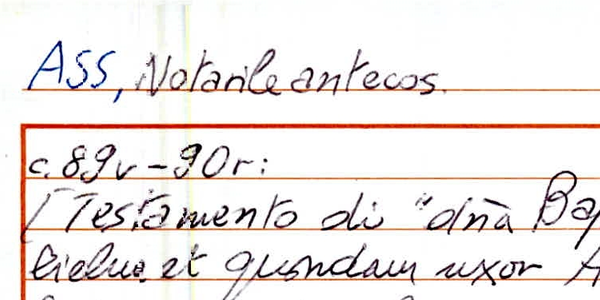 ASS, Notarile antecos.
c. 89v - 90r:
[Testamento di "dña Bap
et quondam uxor